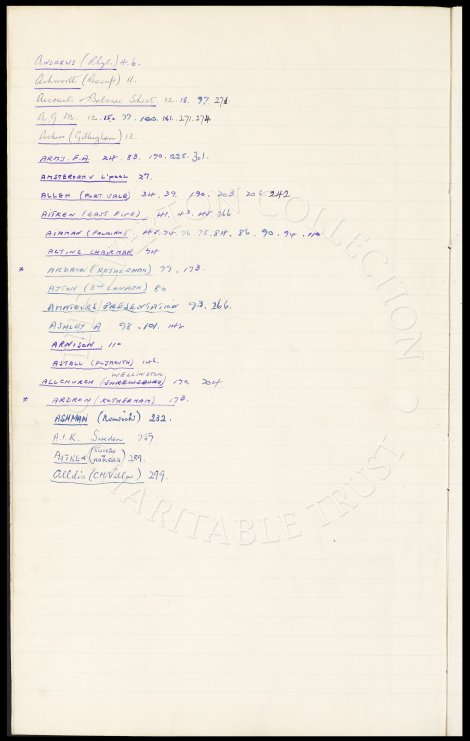 ANDREWS (Rhyl) 4.6.
Ashworth 11.
Accounts & Balance Sheet. 12. 18. 37. 271
A. G. M. 12. 15. 77. 100. 161. 271. 274
Acker (Gillingham) 13.
ARMY. F.A. 24. 83. 170. 225. 301.
AMSTERDAM V L'pool 27.
ALLEN (PORT VALE) 34. 39. 190. 203. 206. 242
AITKEN (EAST FIFE) 41. 43. 45. 266
AIRMAN 45. 74 76 78. 84. 86. 90. 94. 110
ACTING CHAIRMAN 54
* ARDRON (ROTHERHAM) 77. 173.
AYTON (3rd LANARK) 80
AMATEURS PRESENTATION 93. 266.
ASHLEY A 98. 101. 142
ARNISON. 110
ASTALL (PLYMOUTH) 146.
WELLINGTON
ALLCHURCH (SHREWSBURY) 170. 204
* ARDRON (ROTHERHAM) 173.
ASHMAN (Norwich) 232.
A.I.K. Sweden 259.
AITKEN 289.
Alldis (C.H. Villa) 299.
COLLECTION
CHARITABLE TRUST